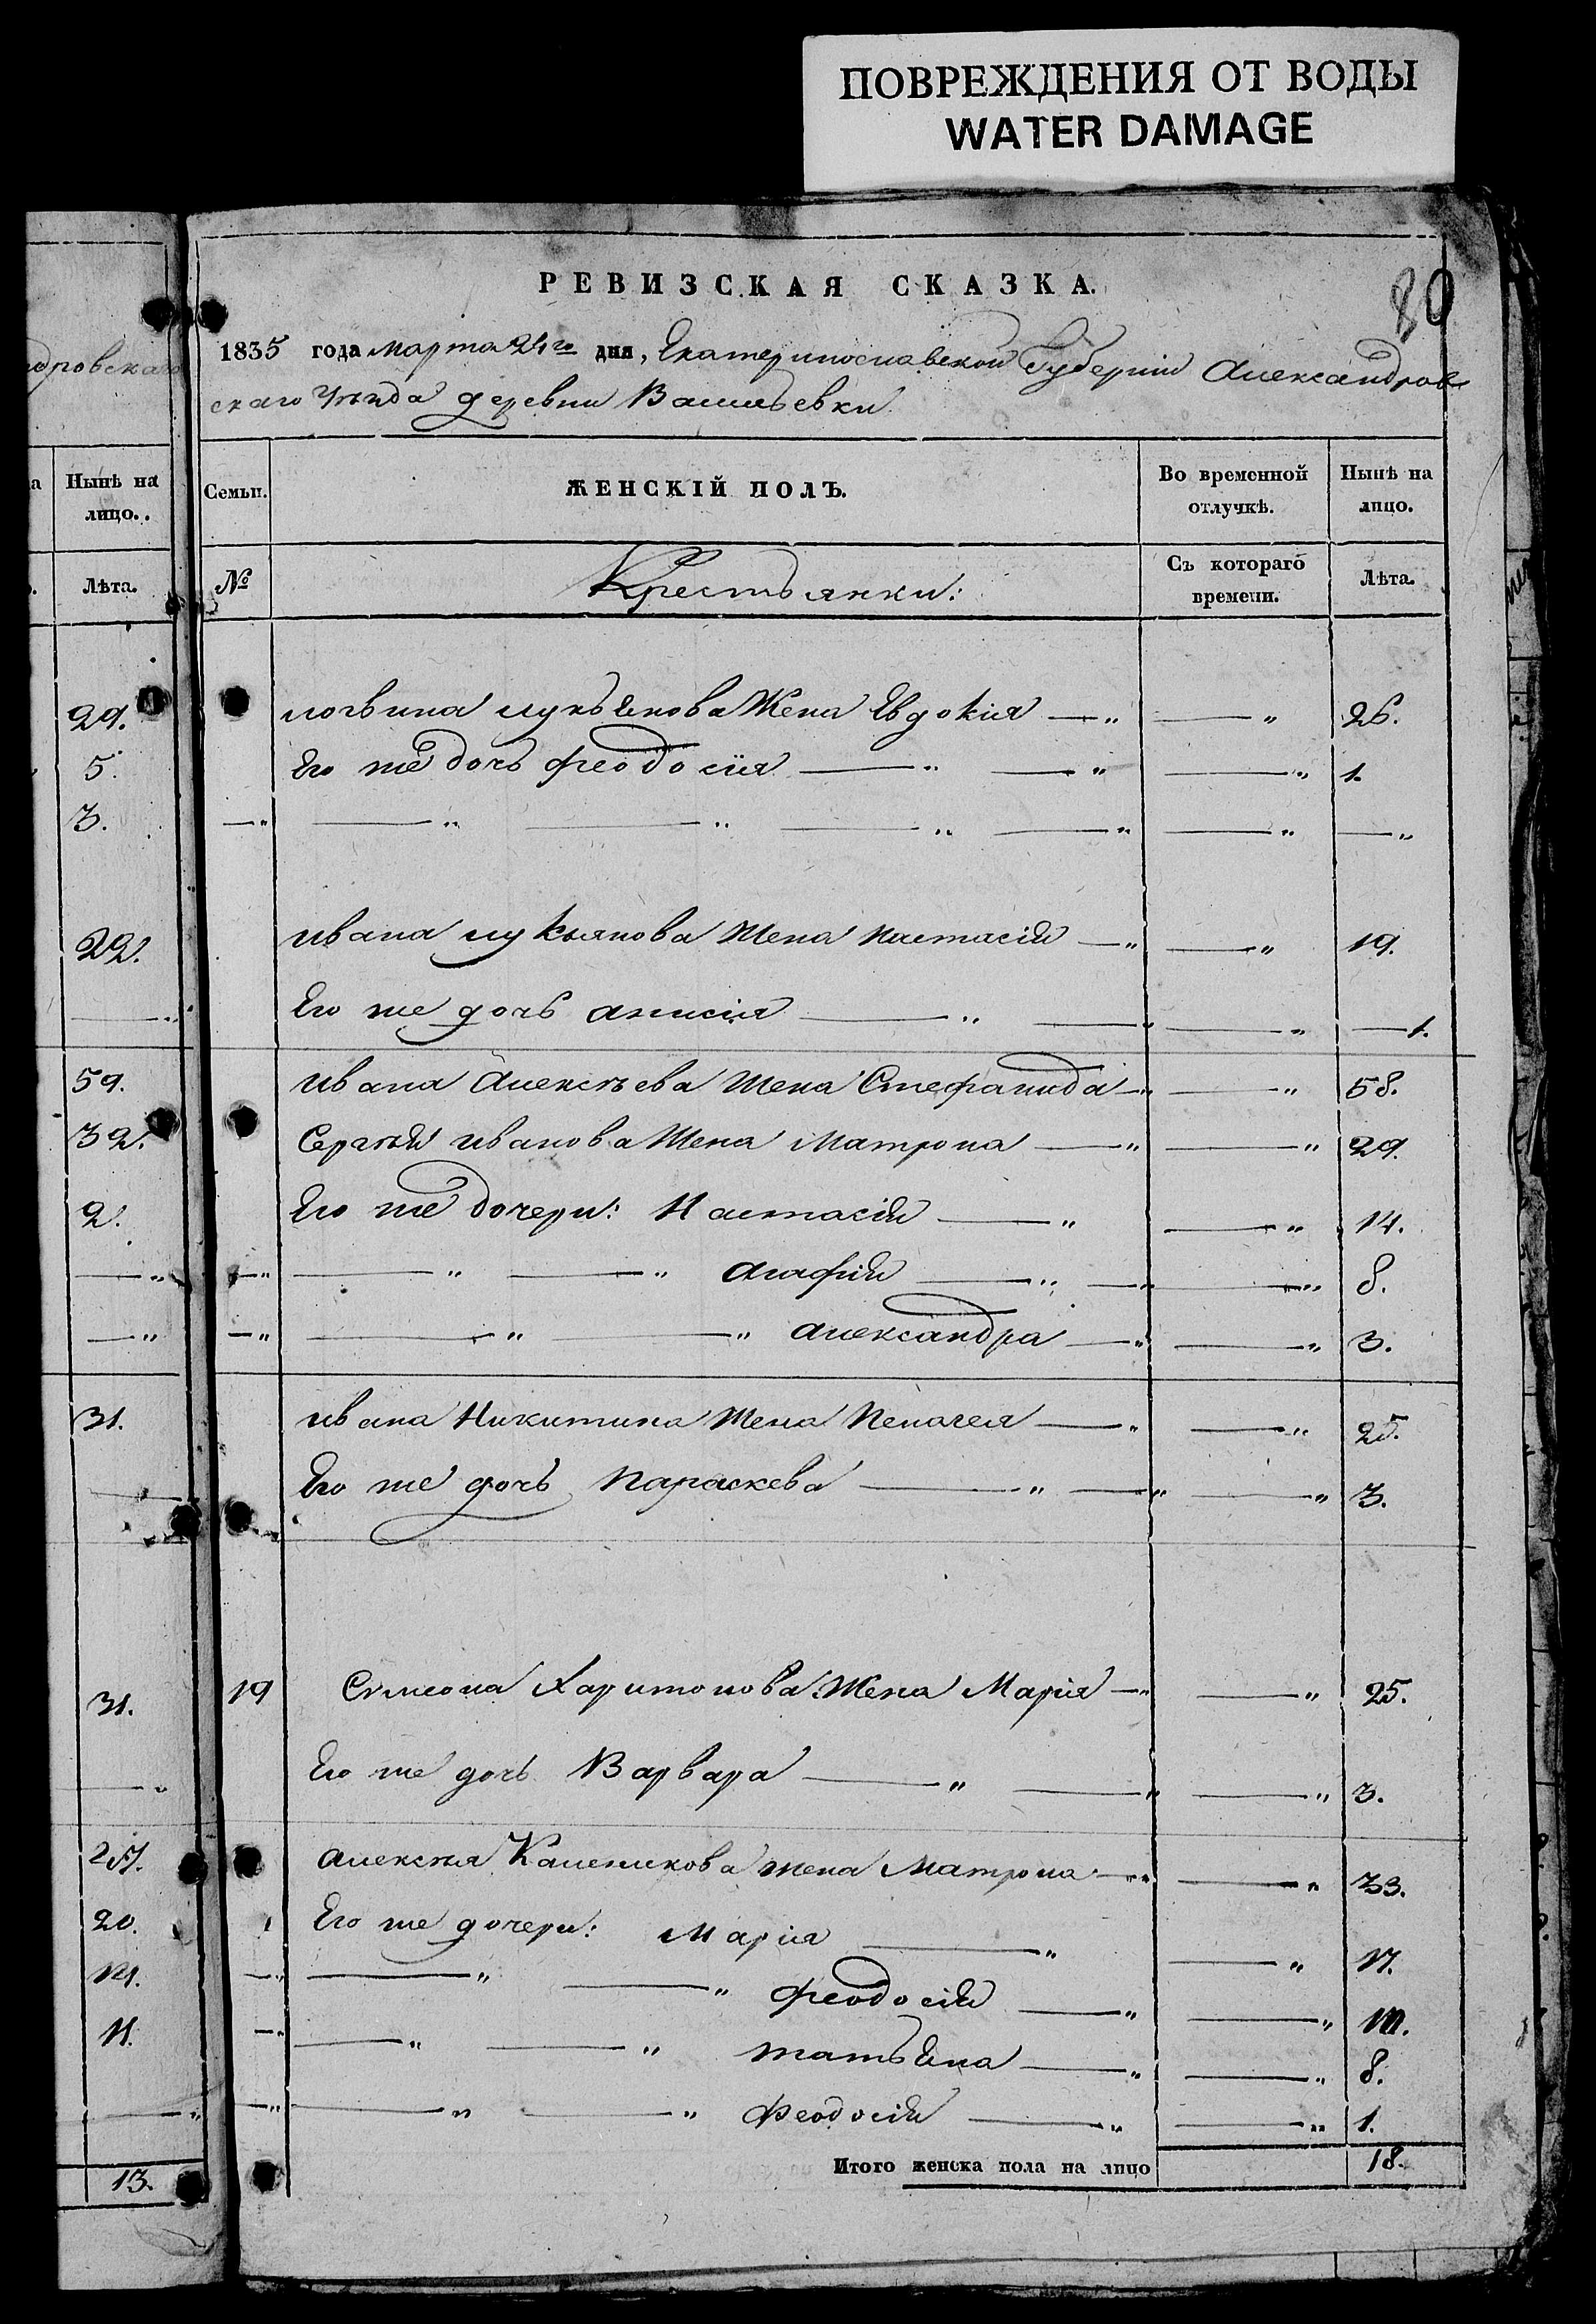 ПОВРЕЖДЕНИЯ ОТ ВОДЫ
WATER DAMAGE
80
РЕВИЗСКАЯ СКАЗКА.
1835 года марта 24го дня, Екатеринославской Губернии Александров
скаго Уѣзда деревни Васильевки
Семьи. ЖЕНСКІЙ ПОЛЪ. Во временной отлучкѣ. Нынѣ на лицо.
№ Крестьянки: Съ котораго времени. Лѣта.
Логвина Лукьянова Жена Евдокія — „ — „ 26.
Его же дочь Феодосія — „ — „ — „ 1.
— „ — „ — „ — „ — „ — „ — „
Ивана Лукьянова Жена Настасія — „ — „ 19.
Его же дочь Анисія — „ — „ — „ — 1.
Ивана Алексѣева Жена Стефанида — „ — „ 58.
Сергѣя Иванова Жена Матрона — „ — „ 29.
Его же дочери: Настасія — „ — „ 14.
— „ — „ — „ Агафія — „ — „ — „ 8.
— „ — „ — „ Александра — „ — „ 3.
Ивана Никитина Жена Пелагея — „ — „ 25.
Его же дочь Параскева — „ — „ — „ 3.
19 Симеона Харитонова Жена Марія — „ — „ 25.
Его же дочь Варвара — „ — „ — „ 3.
Алексѣя жена Матрона — „ — „ 33.
Его же дочери: Марія — „ — „ 17.
— „ — „ — „ Феодосія — „ — „
— „ — „ — „ Татьяна — „ — „ 8.
— „ — „ — „ Феодосія — „ — „ 1.
Итого женска пола на лицо 18.
ндровскаго
Нынѣ на
лицо.
Лѣта.
29.
5.
3.
22.
— „
59.
32.
2.
— „
— „
31.
31.
— „
20.
11.
— „
13.